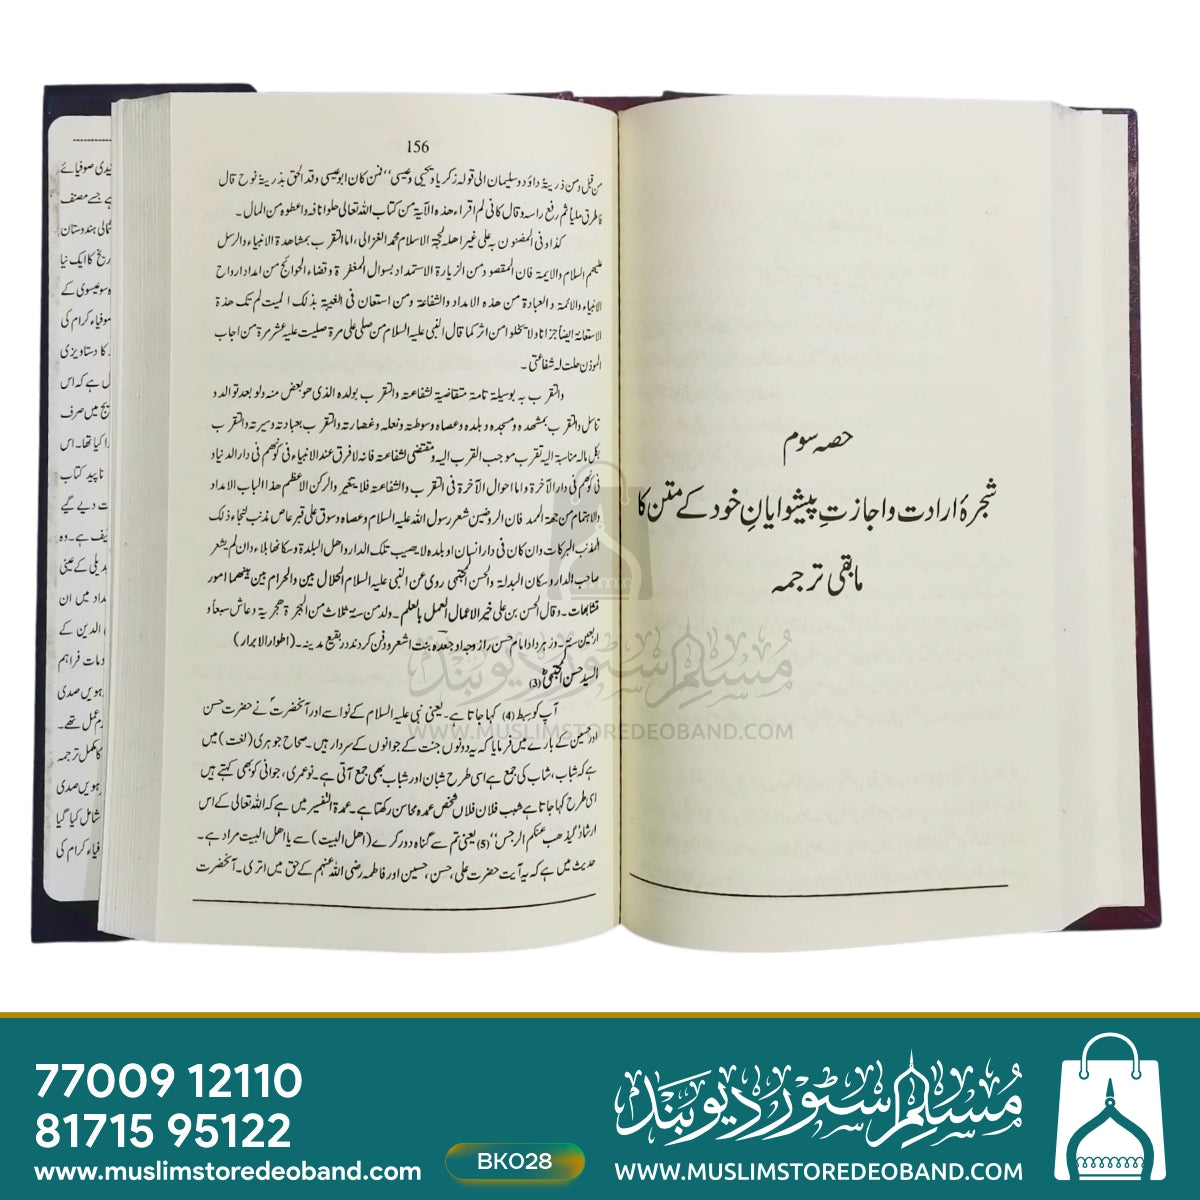 156
من قبل ومن ذریۃ داؤد وسلیمان الی قولہ زکریا ویحییٰ وعیسیٰ‘‘ فمن کان ابوعیسی وقد الحق بذریۃ نوح قال
فاطرق ملیاً ثم رفع راسہ وقال کانی لم اقراء ھذہ الآیۃ من کتاب اللہ تعالی حلوا نافہ واعطوہ من المال۔
کذا و فی المضنون بہ علی غیر اھلہ لحجۃ الاسلام محمد الغزالی، اما التقرب بمشاھدۃ الانبیاء والرسل
علیھم السلام والایمۃ فان المقصود من الزیارۃ الاستمداد بسوال المغفرۃ وقضاء الحوائج من امداد ارواح
الانبیاء والائمۃ والعبادۃ من ھذہ الامداد والشفاعۃ ومن استعان فی الغیبۃ بذلک المیت لم تک ھذۃ
الاستعانۃ ایضاً جزانا ولا یخلوا من اثر کما قال النبی علیہ السلام من صلی علی مرۃ صلیت علیہ عشر مرۃ من اجاب
الموذن حلت لہ شفاعتی۔
والتقرب بہ بوسیلۃ تامۃ متقاضیۃ لشفاعتہ والتقرب بولدہ الذی ھو بعض منہ ولو بعد توالد و
تناسل والتقرب بمشھدہ ومسجدہ وبلدہ وعصاہ وسوطتہ ونعلہ وغصارتہ والتقرب بعبادتہ وسیرتہ والتقرب
بکل مالہ مناسبۃ الیہ تقرب موجب القرب الیہ ومقتضی لشفاعتہ فانہ لا فرق عند الانبیاء فی کونھم فی دار الدنیا و
فی کونھم فی دار الآخرۃ واما احوال الآخرۃ فی التقرب والشفاعتہ فلا یتغیر والرکن الاعظم ھذا الباب الامداد
والاھتمام من جھۃ الممد فان الروضین شعر رسول اللہ علیہ السلام وعصاہ وسوق علی قبر عاص مذنب لنجاء ذلک
المذنب البرکات وان کان فی دار انسان او بلدہ لا یصیب تلک الدار واھل البلدۃ وسکانھا بلاء وان لم یشعر
صاحب الدار وسکان البدلۃ والحسن المجتبیٰ روی عن النبی علیہ السلام الحلال بین والحرام بین بینھما امور
متشابھات۔ وقال الحسن بن علی خیر الاعمال العمل بالعلم۔ ولد من سنۃ ثلاث من الھجرۃ ھجریۃ وعاش سبعاً و
اربعین سنۃ۔ وزھر داد امام حسن را زوجہ او جعدہ بنت اشعر ودفن کردند در بقیع مدینہ۔ (اطوار الابرار)
السید حسن المجتبیٰ (3)
آپ کو سبط (4) کہا جاتا ہے۔ یعنی نبی علیہ السلام کے نواسے اور آنحضرتؐ نے حضرت حسن
اور حسین کے بارے میں فرمایا کہ یہ دونوں جنت کے جوانوں کے سردار ہیں۔ صحاح جوہری (لغت) میں
ہے کہ شباب، شاب کی جمع ہے اسی طرح شبان اور شباب بھی جمع آتی ہے۔ نوعمری، جوانی کو بھی کہتے ہیں
اسی طرح کہا جاتا ہے شبب فلان فلاں شخص عمدہ محاسن رکھتا ہے۔ عمدۃ التفسیر میں ہے کہ اللہ تعالی کے اس
ارشاد لیذھب عنکم الرجس‘‘ (5) یعنی تم سے گناہ دور کرے (اھل البیت) سے یا اھل البیت مراد ہے۔
حدیث میں ہے کہ یہ آیت حضرت علی، حسن، حسین اور فاطمہ رضی اللہ عنہم کے حق میں اتری۔ آنحضرت
حصہ سوم
شجرۂ ارادت و اجازتِ پیشوایانِ خود کے متن کا
مابقی ترجمہ
مسلم سٹور دیوبند
WWW.MUSLIMSTOREDEOBAND.COM
77009 12110
81715 95122
www.muslimstoredeoband.com
BK028
مسلم سٹور دیوبند
WWW.MUSLIMSTOREDEOBAND.COM